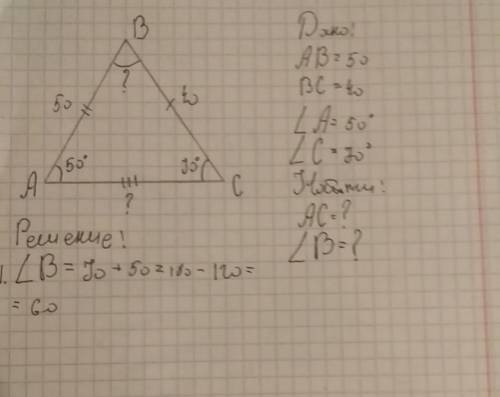 B
50
?
40
50°
70°
A
?
C
Дано:
AB=50
BC=40
∠A=50°
∠C=70°
Найти:
AC=?
∠B=?
Решение!
1. ∠B=70+50=180-120=
=60